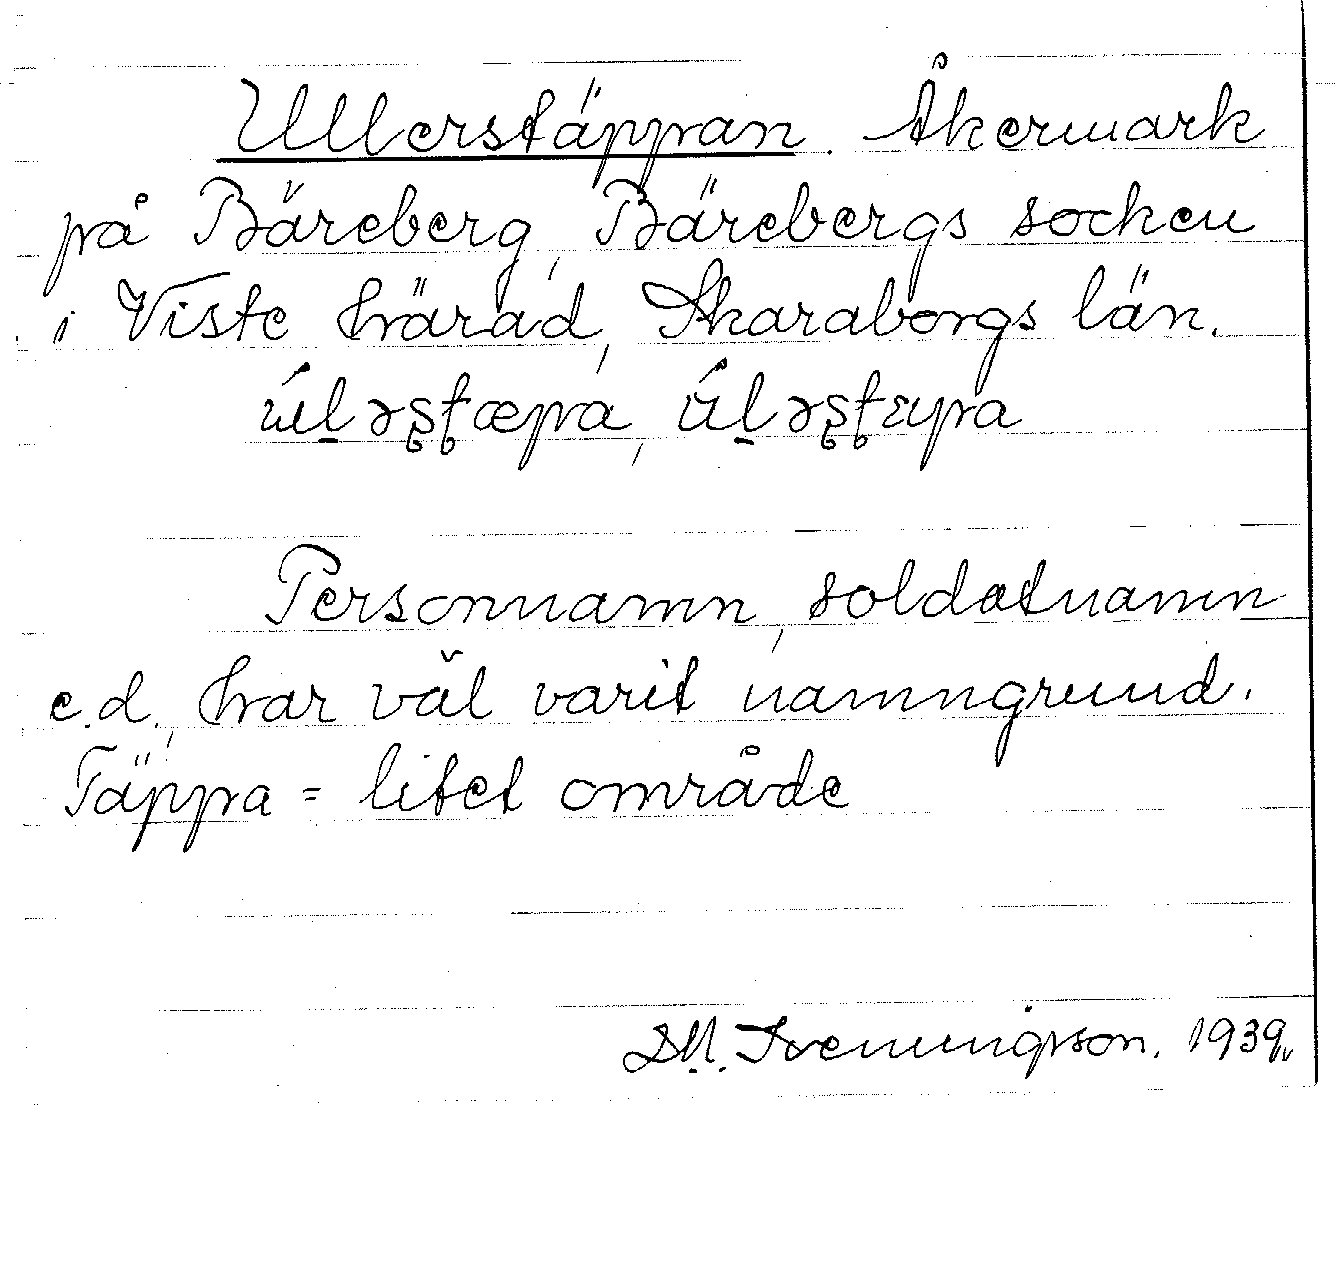 Ullerstäppan. Åkermark
på Bäreberg, Bärebergs socken
i Viste härad, Skaraborgs län.
úl̠əʂʈæpa, ú̃l̠əʂʈɛpa
Personnamn, soldatnamn
e.d., har väl varit namngrund.
Täppa = litet område
D.M. Svenningson. 1939.